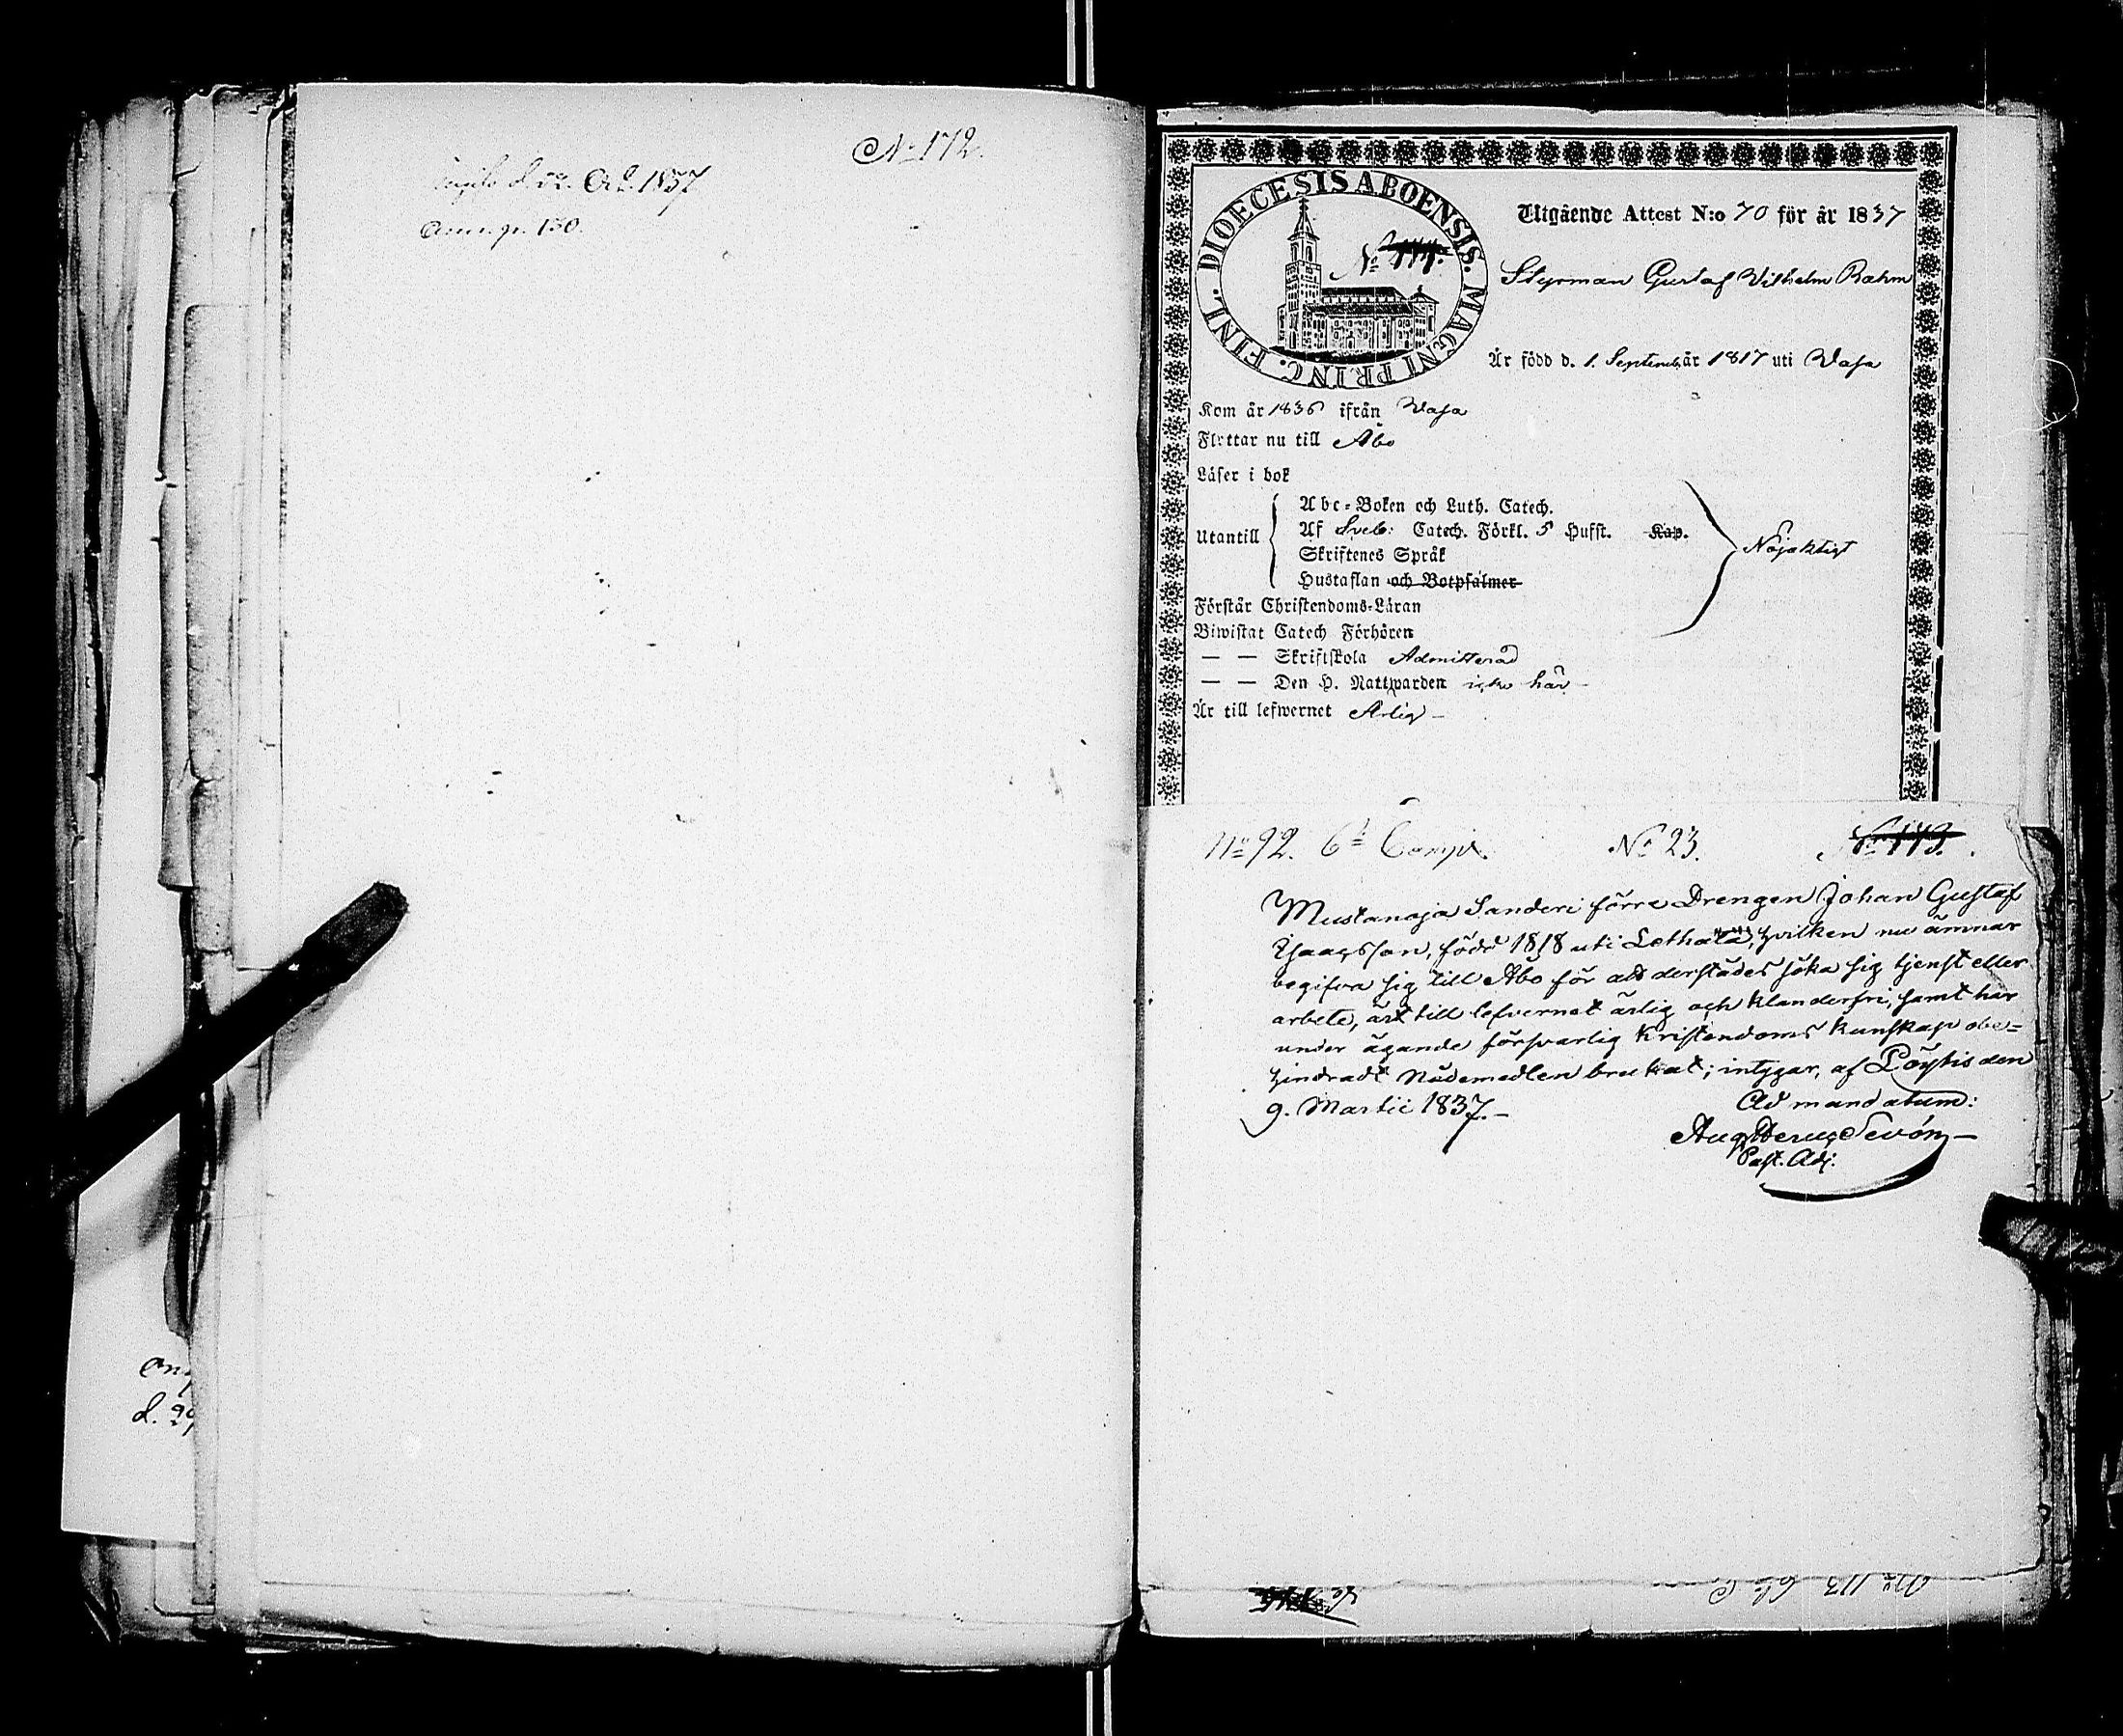 No 172.
d. 52. Oct. 1837
pr. 150.
On
d. 29
DIOECESIS ABOENSIS. MAGNI PRINC. FINL.
Utgående Attest N:o 70 för år 1837
Styrman Gustaf Wilhelm Rahm
Är född d. 1. Septemb. år 1817 uti Wasa
Kom år 1836 ifrån Wasa
Flyttar nu till Åbo
Läser i bok
Utantill
Abc-Boken och Luth. Catech.
Af Sveb: Catech. Förkl. 5 Hufst. Kap.
Skriftenes Språk
Hustaflan och Botpsalmer
Nöjaktigt
Förstår Christendoms-Läran
Biwistat Catech Förhören
— — Skriftskola Admitterad
— — Den H. Nattwarden icke här —
Är till lefwernet Ärlig —
No 92. 6te Comp. No 23. No 173.
Mustanoja Sanderi förre Drengen Johan Gustaf
Isaacsson, född 1818 uti Lethala, hvilken nu ämnar
begifva sig till Åbo för att derstädes söka sig tjenst eller
arbete, är till lefvernet ärlig och klanderfri, samt har
under ägande försvarlig Kristendoms kunskap obe=
hindradt Nådemedlen brukat; intygar, af Löytis den
9. Martii 1837. —
Ad mandatum:
Aug. Sevón —
Past. Adj.
No 113 6te C